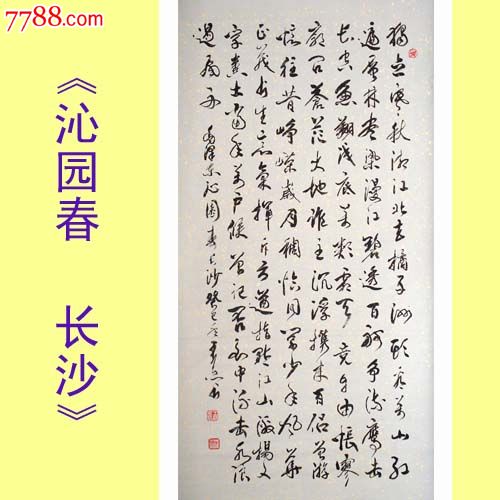 7788.com
《沁园春 长沙》
独立寒秋湘江北去橘子洲头看万山红
遍层林尽染漫江碧透百舸争流鹰击
长空鱼翔浅底万类霜天竞自由怅寥
廓问苍茫大地谁主沉浮携来百侣曾游
忆往昔峥嵘岁月稠恰同学少年风华
正茂书生意气挥斥方遒指点江山激扬文
字粪土当年万户侯曾记否到中流击水浪
遏飞舟 毛泽东沁园春长沙癸巳